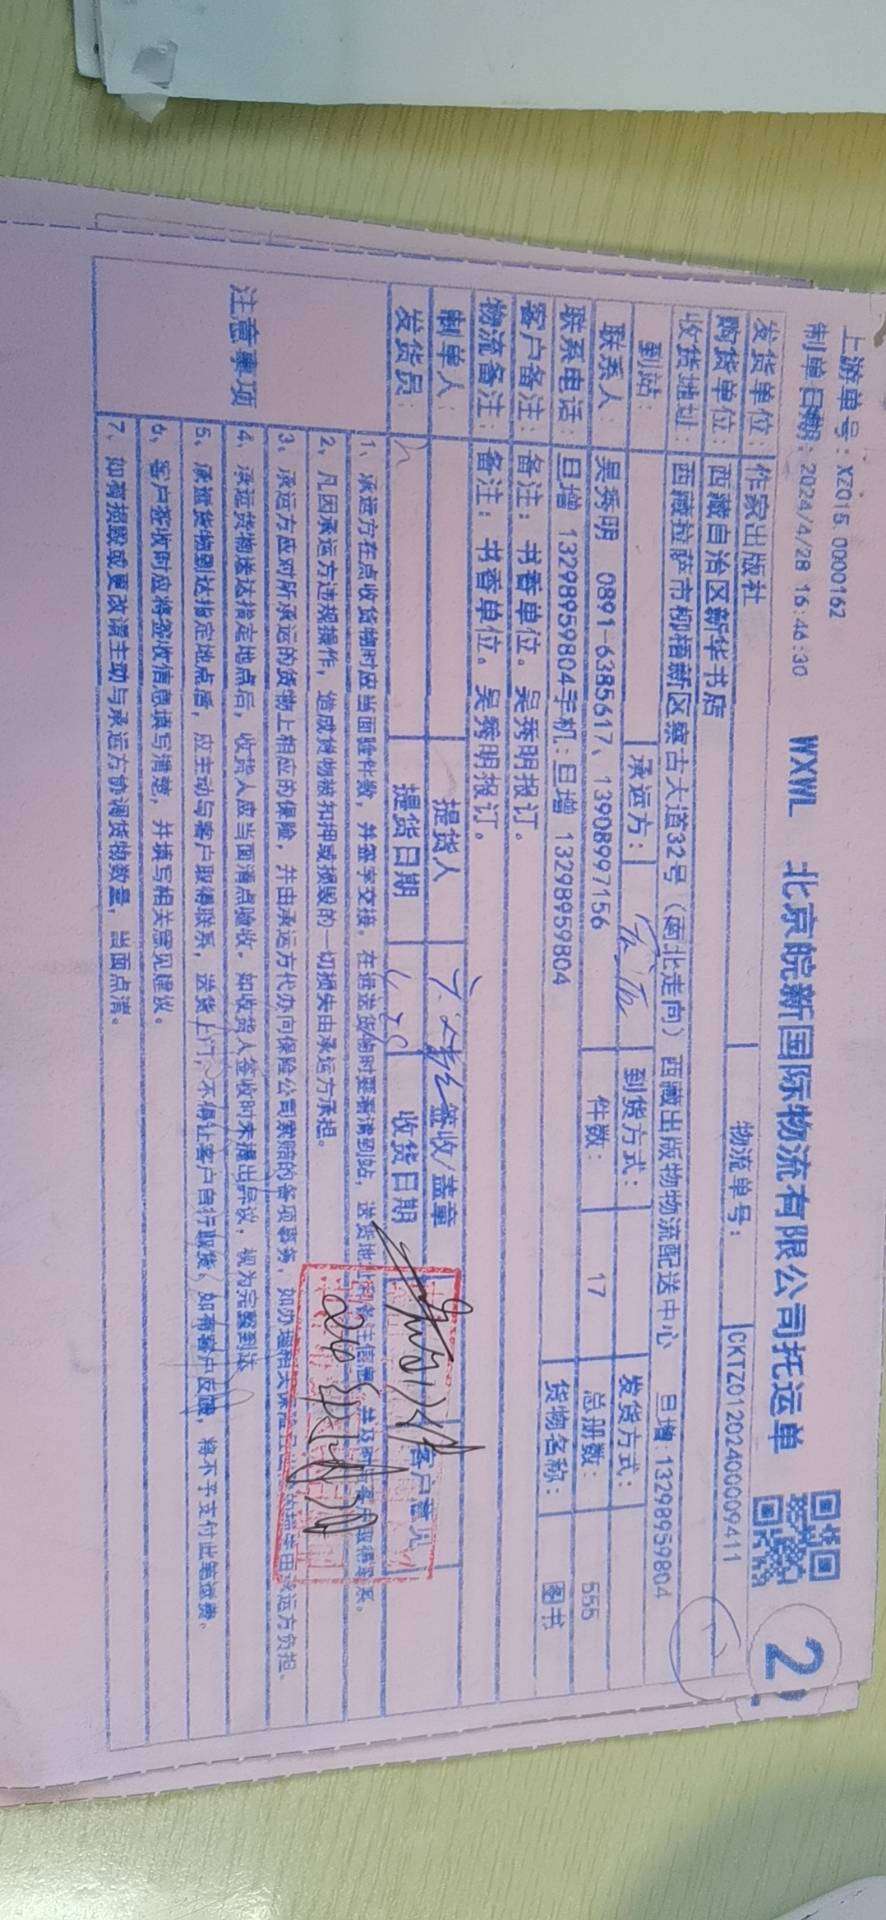 上游单号：XZ015 0000162
WXWL 北京皖新国际物流有限公司托运单
2
制单日期：2024/4/28 16:46:30
物流单号：
CKTZ01202400009411
发货单位：作家出版社
购货单位：西藏自治区新华书店
收货地址：西藏拉萨市柳梧新区察古大道32号（南北走向）西藏出版物物流配送中心 旦增：13298959804
到站： 承运方： 到货方式： 发货方式：
联系人：吴秀明 0891-6385617、13908997156 件数： 17 总册数： 555
联系电话：旦增 13298959804手机：旦增 13298959804 货物名称： 图书
客户备注：备注：书香单位。吴秀明报订。
物流备注：备注：书香单位。吴秀明报订。
制单人： 提货人 签收/盖章 客户意见
发货员： 提货日期 收货日期
注意事项
1、承运方在点收货物时应当面验件数，并签字交接。在托运货物时要看清到站，送货地
2、凡因承运方违规操作，造成货物被扣押或损毁的一切损失由承运方承担。
3、承运方应对所承运的货物上相应的保险，并由承运方代办向保险公司索赔的各项事务，如办理相关保险 承运方负担。
4、承运货物送达指定地点后，收货人应当面清点验收。如收货人签收时未提出异议，视为完整到达
5、承运货物到达指定地点后，应主动与客户取得联系，送货上门，不得让客户自行取货，如有客户反馈，将不予支付此笔运费。
6、客户签收时应将签收信息填写清楚，并填写相关意见建议。
7、如有损毁或更改请主动与承运方协调货物数量，当面点清。